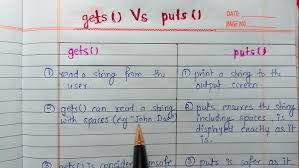 gets() Vs puts()
DATE:
PAGE NO.:
gets()
puts()
① read a string from the
user.
① print a string to the
output screen.
② gets() can read a string
with spaces (eg "John Doe")
② puts ensures the string
including spaces is
displayed exactly as it
is.
③ gets() is consider unsafe
③ puts is safer as